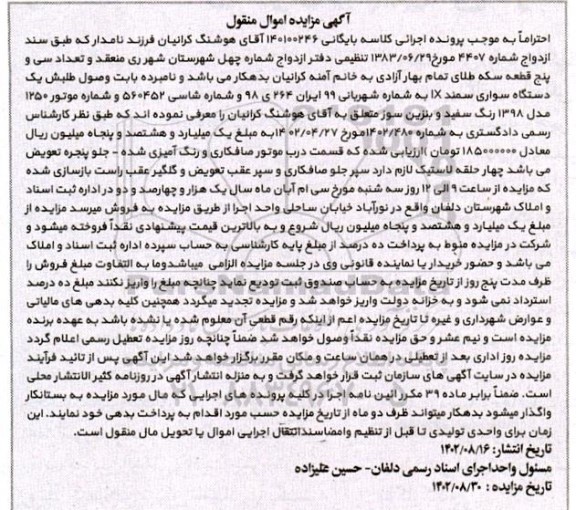 آگهی مزایده اموال منقول
احتراماً به موجب پرونده اجرائی کلاسه بایگانی ۱۴۰۱۰۰۲۴۶ آقای هوشنگ کرانیان فرزند نامدار که طبق سند
ازدواج شماره ۴۴۰۷ مورخ۱۳۸۳/۰۶/۲۹ تنظیمی دفتر ازدواج شماره چهل شهرستان شهر ری منعقد و تعداد سی و
پنج قطعه سکه طلای تمام بهار آزادی به خانم آمنه کرانیان بدهکار می باشد و نامبرده بابت وصول طلبش یک
دستگاه سواری سمند lX به شماره شهربانی ۹۹ ایران ۲۶۴ ی ۹۸ و شماره شاسی ۵۶۰۴۵۲ و شماره موتور ۱۲۵۰
مدل ۱۳۹۸ رنگ سفید و بنزین سوز متعلق به آقای هوشنگ کرانیان را معرفی نموده اند که طبق نظر کارشناس
رسمی دادگستری به شماره ۱۴۰۲/۴۸۰مورخ ۱۴۰۲/۰۴/۲۷به مبلغ یک میلیارد و هشتصد و پنجاه میلیون ریال
معادل ۱۸۵۰۰۰۰۰۰ تومان )ارزیابی شده که قسمت درب موتور صافکاری و رنگ آمیزی شده - جلو پنجره تعویض
می باشد چهار حلقه لاستیک لازم دارد سپر جلو صافکاری و سپر عقب تعویض و گلگیر عقب راست بازسازی شده
که مزایده از ساعت ۹ الی ۱۲ روز سه شنبه مورخ سی ام آبان ماه سال یک هزار و چهارصد و دو در اداره ثبت اسناد
و املاک شهرستان دلفان واقع در نورآباد خیابان ساحلی واحد اجرا از طریق مزایده به فروش میرسد مزایده از
مبلغ یک میلیارد و هشتصد و پنجاه میلیون ریال شروع و به بالاترین قیمت پیشنهادی نقداً فروخته میشود و
شرکت در مزایده منوط به پرداخت ده درصد از مبلغ پایه کارشناسی به حساب سپرده اداره ثبت اسناد و املاک
می باشد و حضور خریدار یا نماینده قانونی وی در جلسه مزایده الزامی میباشدوما به التفاوت مبلغ فروش را
ظرف مدت پنج روز از تاریخ مزایده به حساب صندوق ثبت تودیع نماید چنانچه مبلغ را واریز نکنند مبلغ ده درصد
استرداد نمی شود و به خزانه دولت واریز خواهد شد و مزایده تجدید میگردد همچنین کلیه بدهی های مالیاتی
و عوارض شهرداری و غیره تا تاریخ مزایده اعم از اینکه رقم قطعی آن معلوم شده یا نشده باشد به عهده برنده
مزایده است و نیم عشر و حق مزایده نقداً وصول خواهد شد ضمناً چنانچه روز مزایده تعطیل رسمی اعلام گردد
مزایده روز اداری بعد از تعطیلی در همان ساعت و مکان مقرر برگزار خواهد شد این آگهی پس از تائید فرآیند
مزایده در سایت آگهی های سازمان ثبت قرار خواهد گرفت و به منزله انتشار آگهی در روزنامه کثیر الانتشار محلی
است. ضمناً برابر ماده ۳۹ مکرر آئین نامه اجرا در کلیه پرونده های اجرایی که مال مورد مزایده به بستانکار
واگذار میشود بدهکار میتواند ظرف دو ماه از تاریخ مزایده حسب مورد اقدام به پرداخت بدهی خود نمایند. این
زمان برای واحدی تولیدی تا قبل از تنظیم وامضاسندانتقال اجرایی اموال یا تحویل مال منقول است.
تاریخ انتشار: ۱۴۰۲/۰۸/۱۶
مسئول واحداجرای اسناد رسمی دلفان- حسین علیزاده
تاریخ مزایده : ۱۴۰۲/۰۸/۳۰